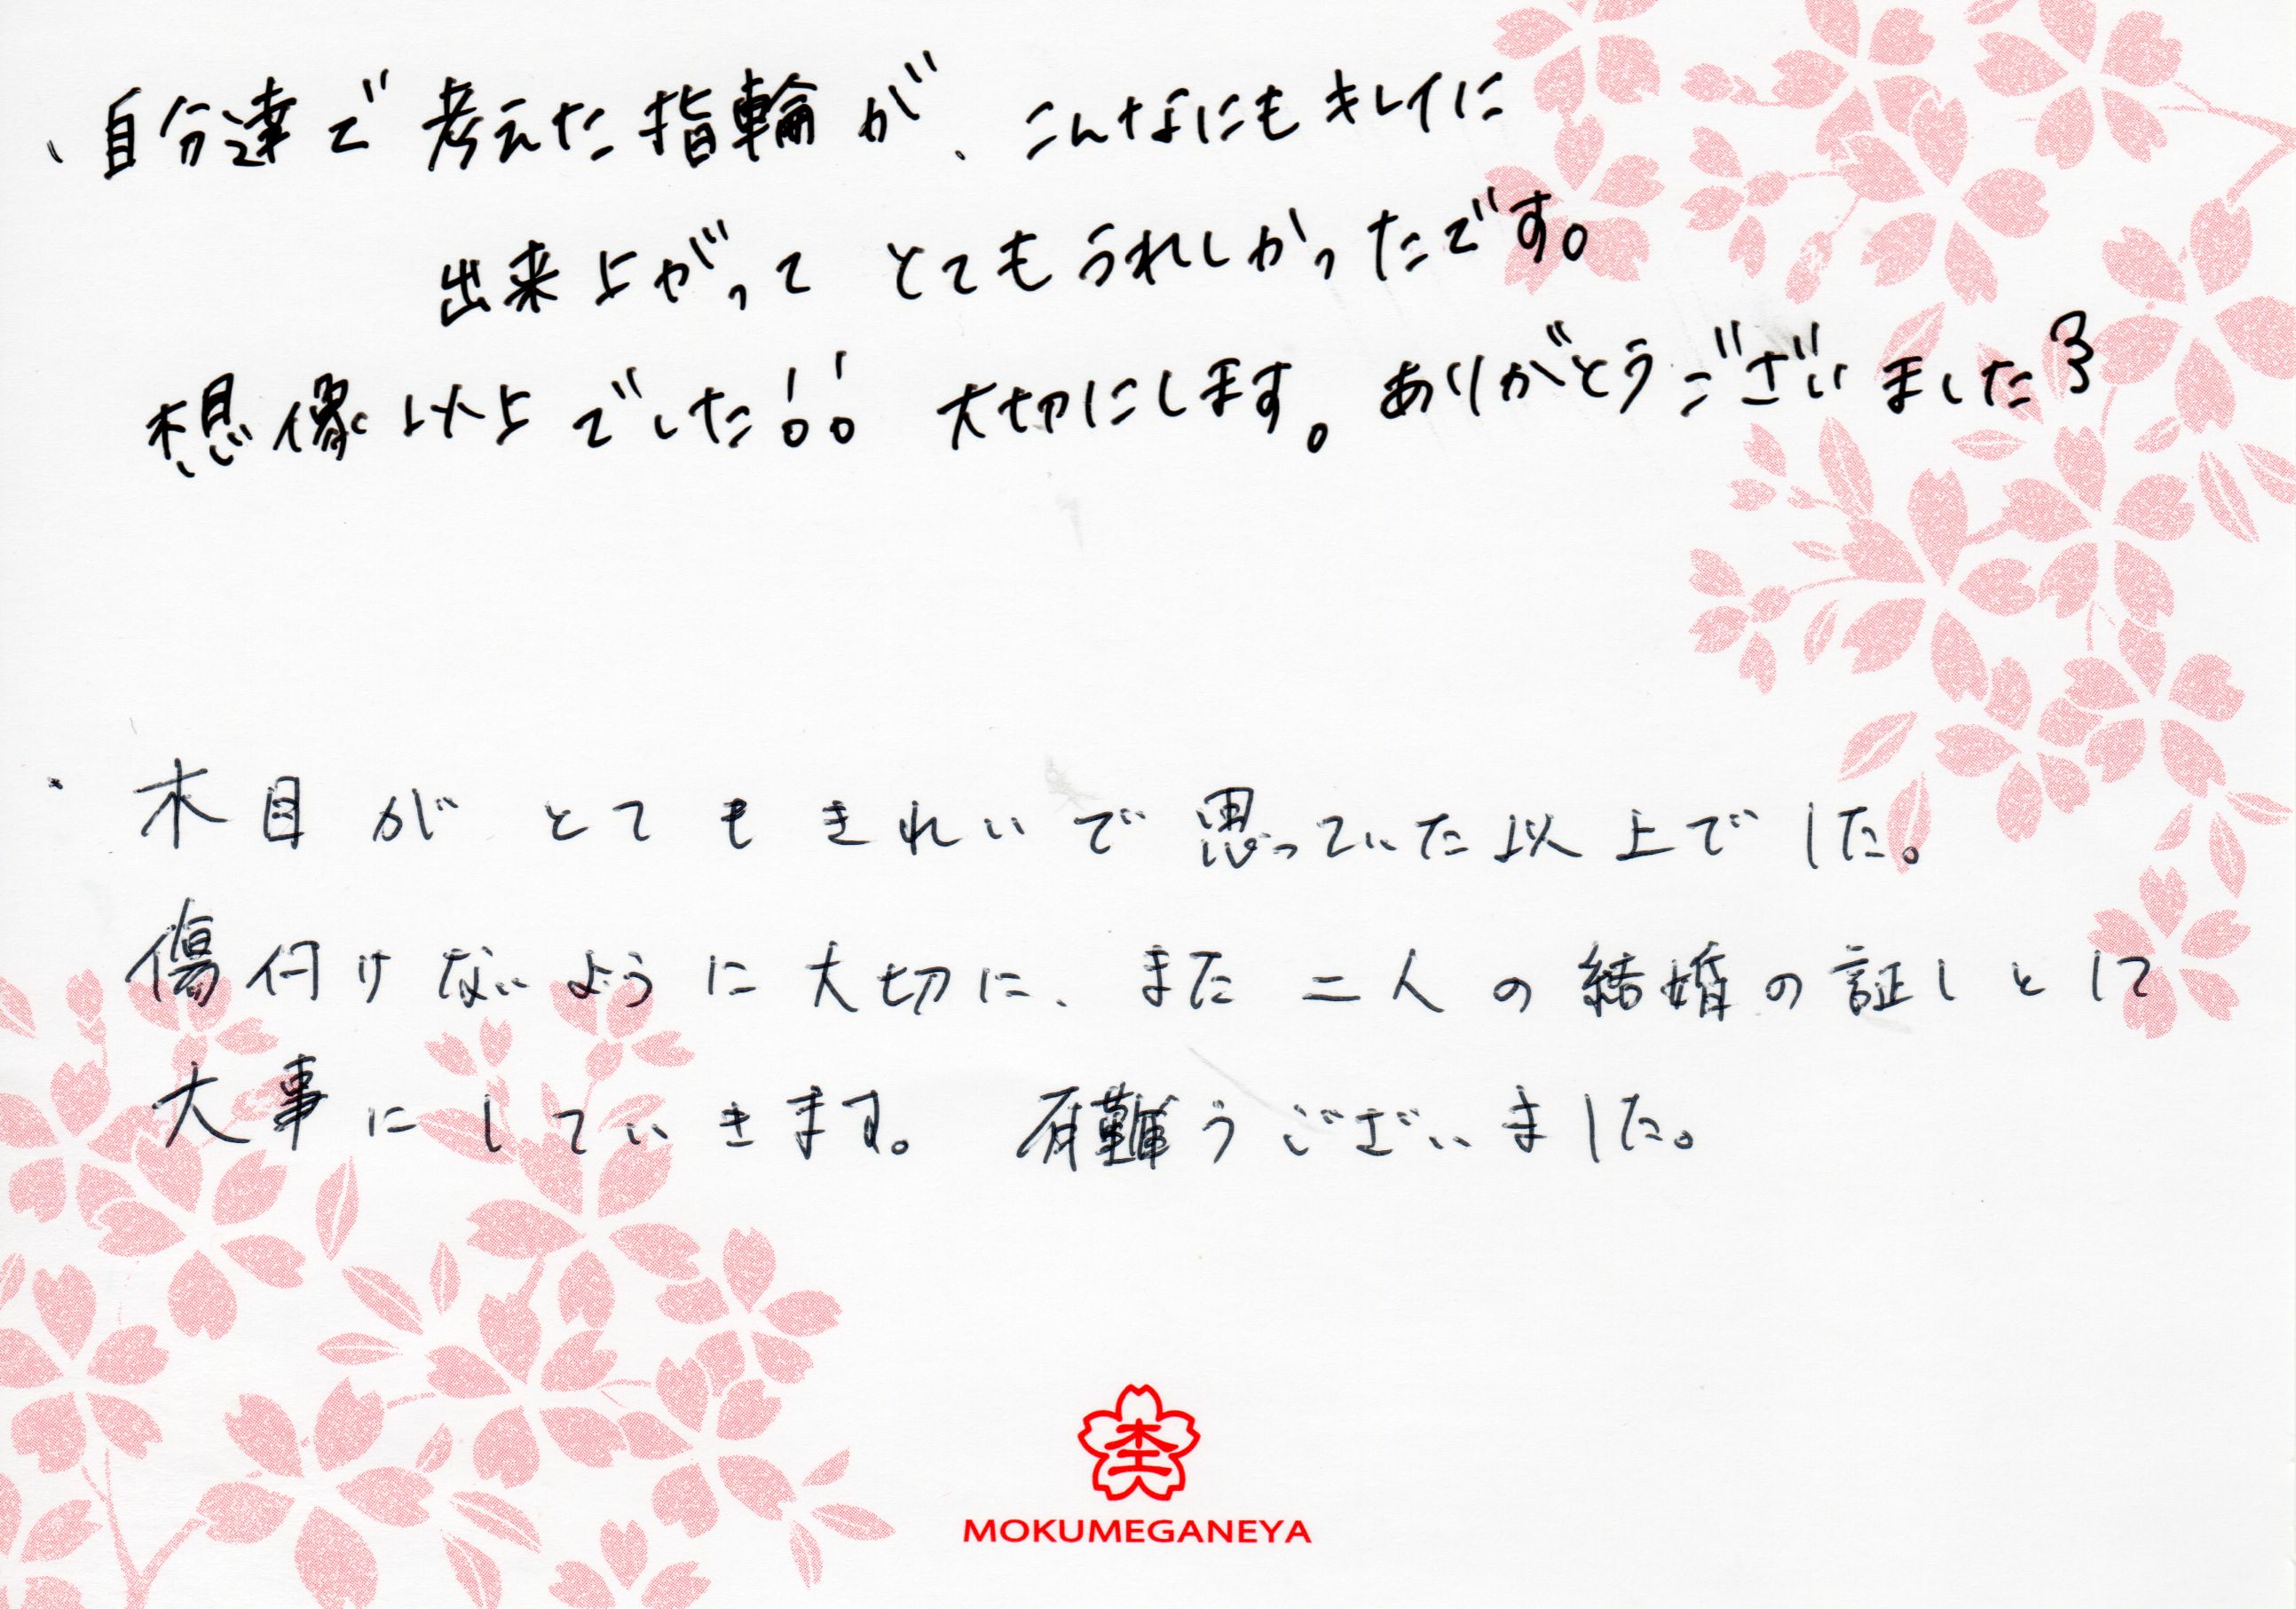 ・自分達で考えた指輪が、こんなにもキレイに
出来上がってとてもうれしかったです。
想像以上でした!! 大切にします。ありがとうございました
・木目がとてもきれいで思っていた以上でした。
傷付けないように大切に、また二人の結婚の証しとして
大事にしていきます。 有難うございました。
MOKUMEGANEYA